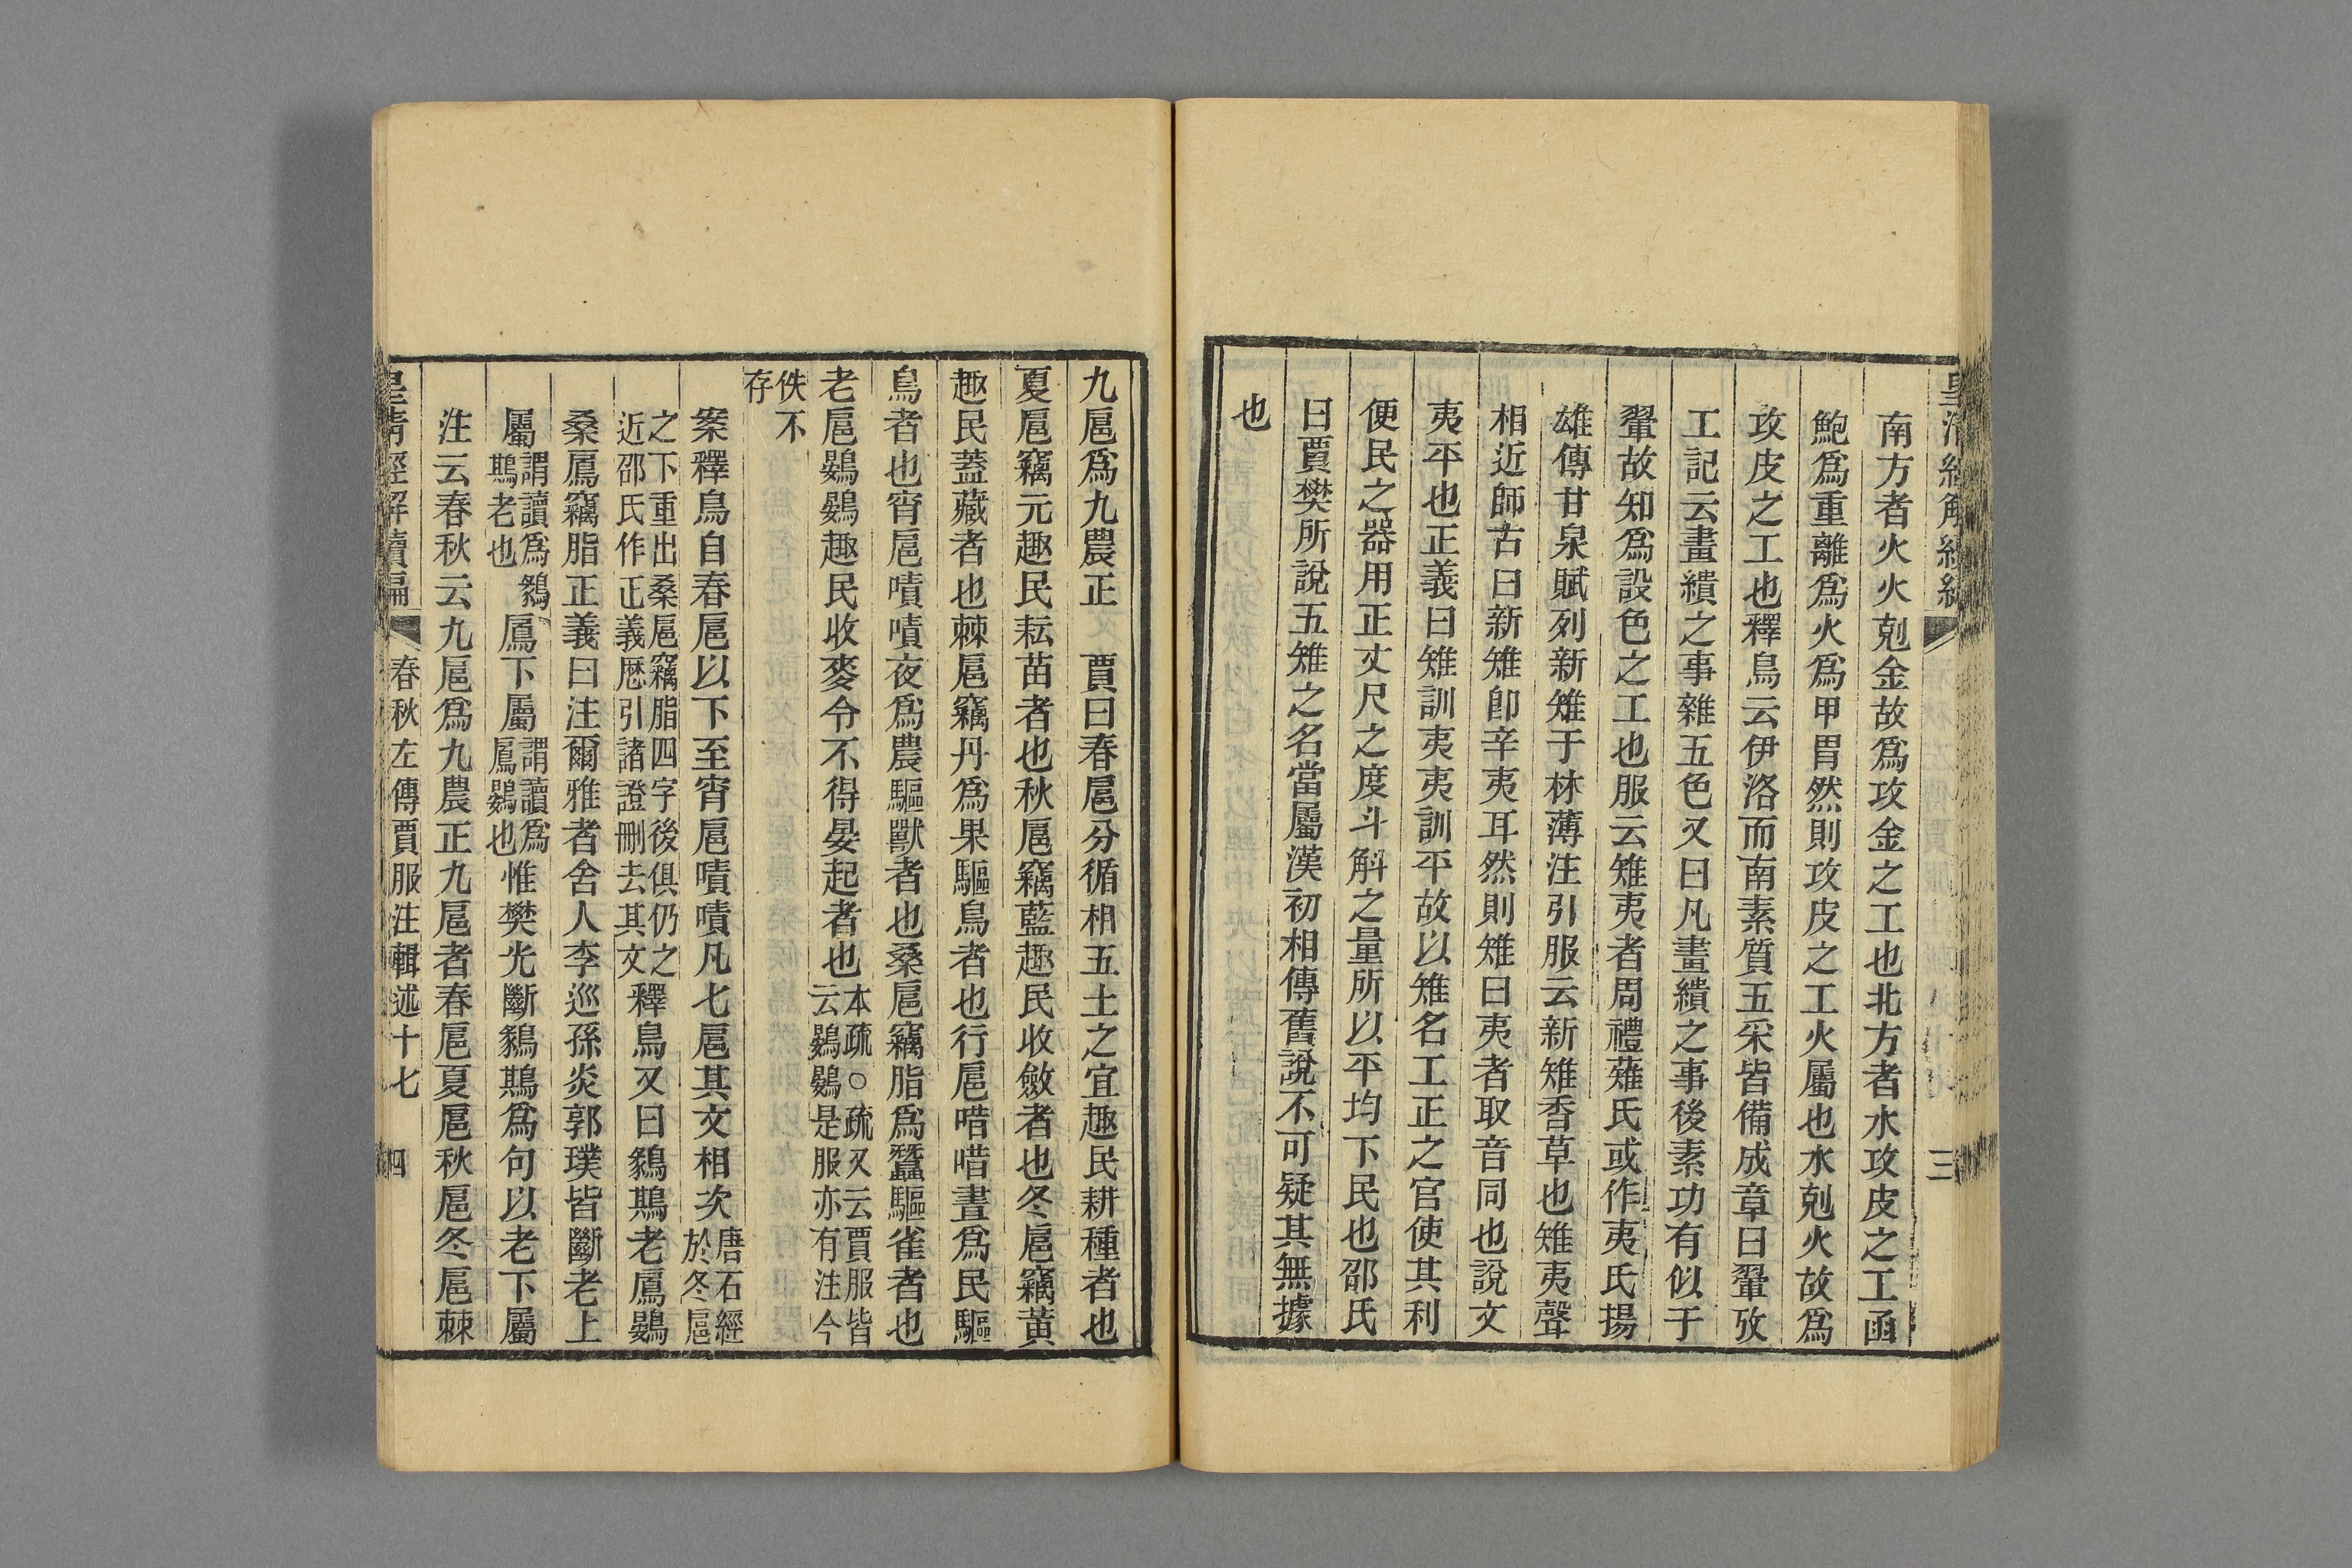 南方者火火剋金故爲攻金之工也北方者水攻皮之工函
鮑爲重離爲火爲甲胃然則攻皮之工火屬也水剋火故爲
攻皮之工也釋鳥云伊洛而南素質五采皆備成章曰翬攷
工記云畫繢之事雜五色又曰凡畫繢之事後素功有似于
翬故知爲設色之工也服云雉夷者周禮薙氏或作夷氏揚
雄傳甘泉賦列新雉于林薄注引服云新雉香草也雉夷聲
相近師古曰新雉卽辛夷耳然則雉曰夷者取音同也說文
夷平也正義曰雉訓夷夷訓平故以雉名工正之官使其利
便民之器用正丈尺之度斗斛之量所以平均下民也邵氏
曰賈樊所說五雉之名當屬漢初相傳舊說不可疑其無據
也
三
九扈爲九農正 賈曰春扈分循相五土之宜趣民耕種者也
夏扈竊元趣民耘苗者也秋扈竊藍趣民收斂者也冬扈竊黃
趣民蓋藏者也棘扈竊丹爲果驅鳥者也行扈唶唶晝爲民驅
鳥者也宵扈嘖嘖夜爲農驅獸者也桑扈竊脂爲蠶驅雀者也
老扈鷃鷃趣民收麥令不得晏起者也本疏○疏又云賈服皆云鷃鷃是服亦有注今
佚不存
案釋鳥自春扈以下至宵扈嘖嘖凡七扈其文相次唐石經於冬扈
之下重出桑扈竊脂四字後俱仍之近邵氏作正義歷引諸證刪去其文釋鳥又曰鷚鷏老鳸鷃
桑鳸竊脂正義曰注爾雅者舍人李巡孫炎郭璞皆斷老上
屬謂讀爲鷚鷏老也鳸下屬謂讀爲鳸鷃也惟樊光斷鷚鷏爲句以老下屬
注云春秋云九扈爲九農正九扈者春扈夏扈秋扈冬扈棘
皇清經解續編 春秋左傳賈服注輯述十七 四